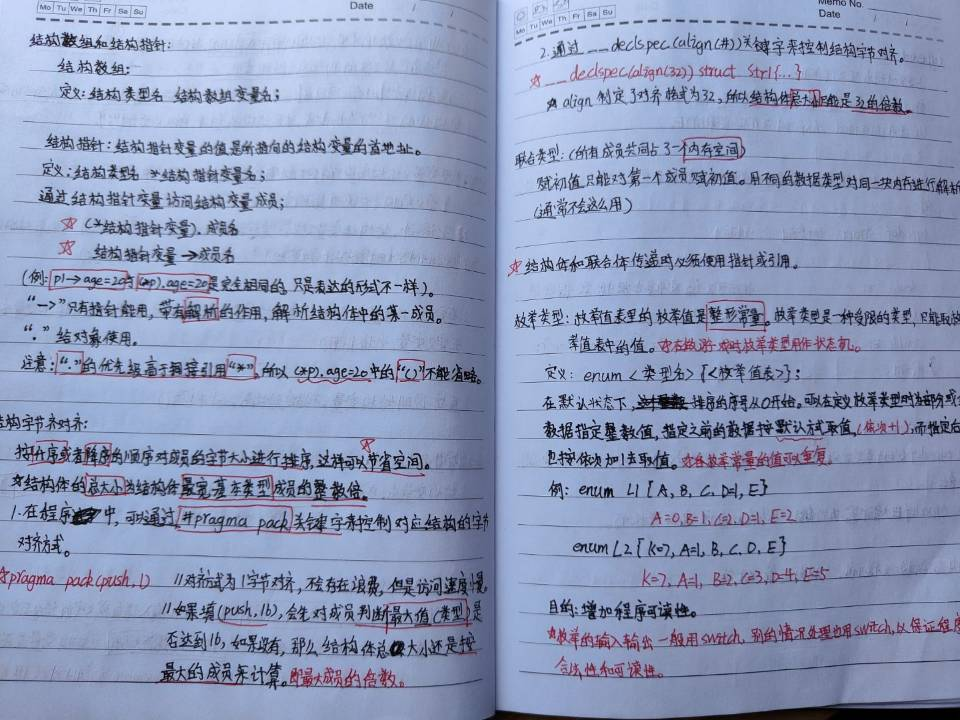 Mo Tu We Th Fr Sa Su
Date
结构数组和结构指针：
结构数组：
定义：结构类型名 结构数组变量名；
结构指针：结构指针变量的值是所指向的结构变量的首地址。
定义：结构类型名 *结构指针变量名；
通过结构指针变量访问结构变量成员；
☆ (*结构指针变量).成员名
☆ 结构指针变量→成员名
(例: p1→age=20与(*p).age=20是完全相同的，只是表达的形式不一样)。
“→”只有指针能用，带有解析的作用，解析结构体中的某一成员。
“.” 给对象使用。
注意：“.”的优先级高于间接引用“*”，所以 (*p).age=20中的“()”不能省略。
结构字节对齐：
按升序或者降序的顺序对成员的字节大小进行排序，这样可以节省空间。
☆结构体的总大小为结构体最宽基本类型成员的整数倍。
1.在程序中，可以通过#pragma pack关键字来控制对应结构的字节
对齐方式。
☆pragma pack(push,1) //对齐式为1字节对齐，不会存在浪费，但是访问速度慢。
//如果填(push,16)，会先对成员判断最大值(类型)是
否达到16，如果没有，那么结构体总大小还是按
最大的成员来计算。即最大成员的倍数。
Memo No.
Mo Tu We Th Fr Sa Su
Date
2.通过 __declspec(align(#))关键字来控制结构字节对齐。
☆ __declspec(align(32)) struct Str1{...}
☆ align制定了对齐格式为32，所以结构体总大小只能是32的倍数。
联合类型：(所有成员共同占了一个内存空间)
赋初值只能对第一个成员赋初值。用不同的数据类型对同一块内存进行解析
(通常不会这么用)
☆结构体和联合体传递时必须使用指针或引用。
枚举类型：枚举值表里的枚举值是整形常量。枚举类型是一种受限的类型，只能取枚
举值表中的值。☆在做游戏时枚举类型用作状态机。
定义：enum <类型名> {<枚举值表>}；
在默认状态下，排序的序号从0开始。可以在定义枚举类型时为部分或全
数据指定整数值，指定之前的数据按默认方式取值，(依次+1)，而指定后
也按依次加1去取值。☆各枚举常量的值可以重复。
例：enum L1 {A, B, C, D=1, E}
A=0, B=1, C=2, D=1, E=2
enum L2 {K=7, A=1, B, C, D, E}
K=7, A=1, B=2, C=3, D=4, E=5
目的：增加程序可读性。
☆枚举的输入输出一般用switch，别的情况处理也用switch，以保证程序
合法性和可读性。